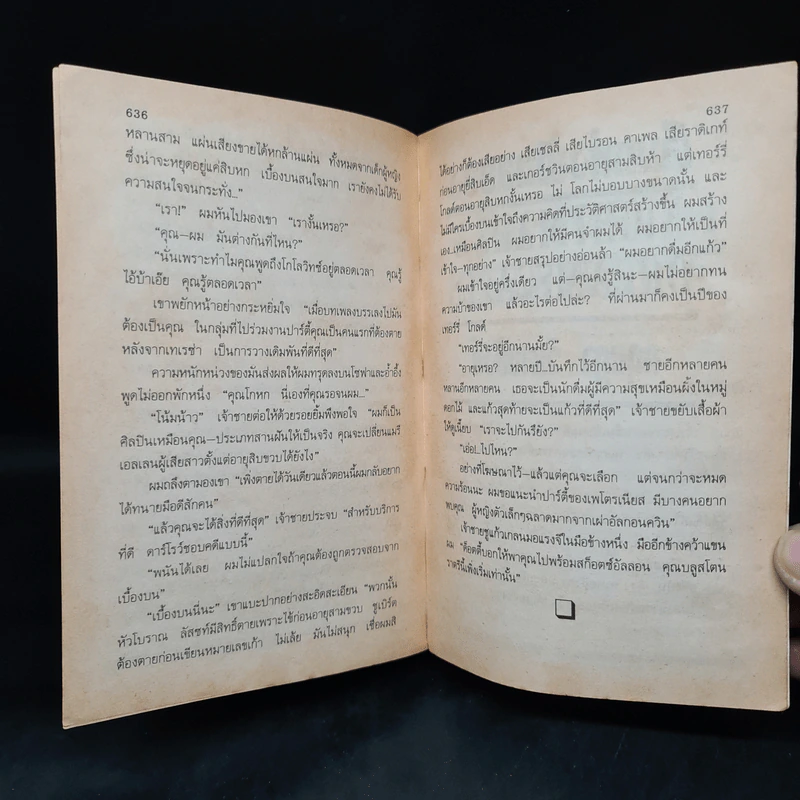 636
หลานสาม แผ่นเสียงขายได้หกล้านแผ่น ทั้งหมดจากเด็กผู้หญิง
ซึ่งน่าจะหยุดอยู่แค่สิบหก เบื้องบนสนใจมาก เรายังคงไม่ได้รับ
ความสนใจจนกระทั่ง..."
"เรา!" ผมหันไปมองเขา "เรางั้นเหรอ?"
"คุณ—ผม มันต่างกันที่ไหน?"
"นั่นเพราะทำไมคุณพูดถึงโกโลวิทซ์อยู่ตลอดเวลา คุณรู้
ไอ้บ้าเอ๊ย คุณรู้ตลอดเวลา"
เขาพยักหน้าอย่างกระหยิ่มใจ "เมื่อบทเพลงบรรเลงไปมัน
ต้องเป็นคุณ ในกลุ่มที่ไปร่วมงานปาร์ตี้คุณเป็นคนแรกที่ต้องตาย
หลังจากเทเรซ่า เป็นการวางเดิมพันที่ดีที่สุด"
ความหนักหน่วงของมันส่งผลให้ผมทรุดลงบนโซฟาและอ้ำอึ้ง
พูดไม่ออกพักหนึ่ง "คุณโกหก นี่เองที่คุณรอจนผม..."
"โน้มน้าว" เจ้าชายต่อให้ด้วยรอยยิ้มพึงพอใจ "ผมก็เป็น
ศิลปินเหมือนคุณ—ประเภทสานฝันให้เป็นจริง คุณจะเปลี่ยนแมรี
เอลเลนผู้เสียสาวตั้งแต่อายุสิบขวบได้ยังไง"
ผมถลึงตามองเขา "เพิ่งตายได้วันเดียวแล้วตอนนี้ผมกลับอยาก
ได้ทนายมือดีสักคน"
"แล้วคุณจะได้สิ่งที่ดีที่สุด" เจ้าชายประจบ "สำหรับบริการ
ที่ดี ดาร์โรว์ชอบคดีแบบนี้"
"พนันได้เลย ผมไม่แปลกใจถ้าคุณต้องถูกตรวจสอบจาก
เบื้องบน"
"เบื้องบนนี่นะ" เขาแบะปากอย่างสะอิดสะเอียน "พวกนั้น
หัวโบราณ ลัสซท์มีสิทธิ์ตายเพราะไข้ก่อนอายุสามขวบ ชูเบิร์ต
ต้องตายก่อนเขียนหมายเลขเก้า ไม่เลย มันไม่สนุก เชื่อผมสิ
637
ได้อย่างก็ต้องเสียอย่าง เสียเชลลี่ เสียไบรอน คาเพล เสียราดิเกท์
ก่อนอายุยี่สิบเอ็ด และเกอร์ชวินตอนอายุสามสิบห้า แต่เทอร์รี่
โกลด์ตอนอายุสิบหกงั้นเหรอ ไม่ โลกไม่บอบบางขนาดนั้น และ
ไม่มีใครเบื้องบนเข้าใจถึงความคิดที่ประวัติศาสตร์สร้างขึ้น ผมสร้าง
เอง...เหมือนศิลปิน ผมอยากให้มีคนจำผมได้ ผมอยากให้เป็นที่
เข้าใจ—ทุกอย่าง" เจ้าชายสรุปอย่างอ่อนล้า "ผมอยากดื่มอีกแก้ว"
ผมเข้าใจอยู่ครึ่งเดียว แต่—คุณคงรู้สินะ—ผมไม่อยากทน
ความบ้าของเขา แล้วอะไรต่อไปล่ะ? ที่ผ่านมาก็คงเป็นปีของ
เทอร์รี่ โกลด์
"เทอร์รี่จะอยู่อีกนานมั้ย?"
"อายุเหรอ? หลายปี...บันทึกไว้อีกนาน ชายอีกหลายคน
หลานอีกหลายคน เธอจะเป็นนักดื่มผู้มีความสุขเหมือนผึ้งในหมู่
ดอกไม้ และแก้วสุดท้ายจะเป็นแก้วที่ดีที่สุด" เจ้าชายขยับเสื้อผ้า
ให้ดูเนี้ยบ "เราจะไปกันรึยัง?"
"เอ่อ...ไปไหน?"
อย่างที่โฆษณาไว้—แล้วแต่คุณจะเลือก แต่จนกว่าจะหมด
ความร้อนนะ ผมขอแนะนำปาร์ตี้ของเพโตรเนียส มีบางคนอยาก
พบคุณ ผู้หญิงตัวเล็กๆฉลาดมากจากเผ่าอัลกอนควิน"
เจ้าชายชูแก้วเกลนมอแรงจีในมือข้างหนึ่ง มืออีกข้างคว้าแขน
ผม "ด็อตตี้บอกให้พาคุณไปพร้อมสก็อตช์อัลลอน คุณบลูสโตน
ราตรีนี้เพิ่งเริ่มเท่านั้น"